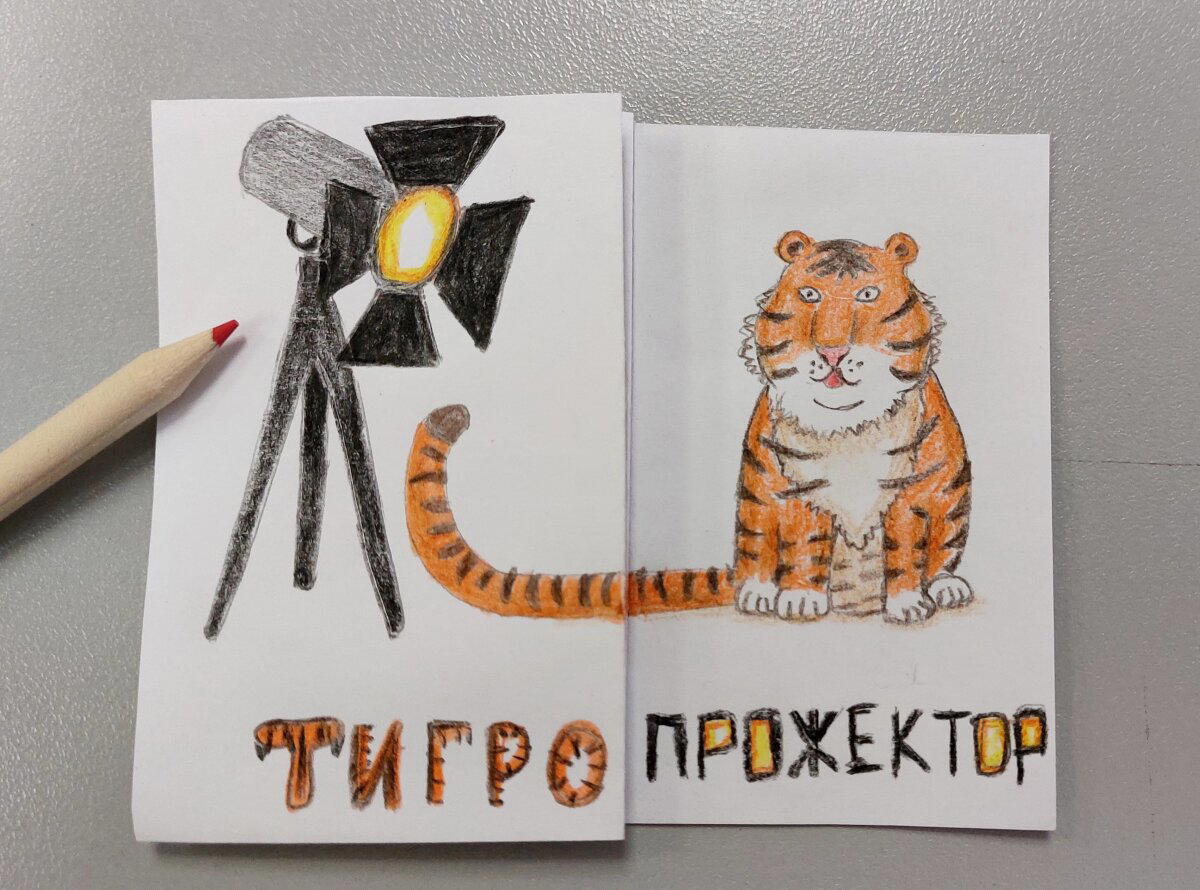 ТИГРО ПРОЖЕКТОР